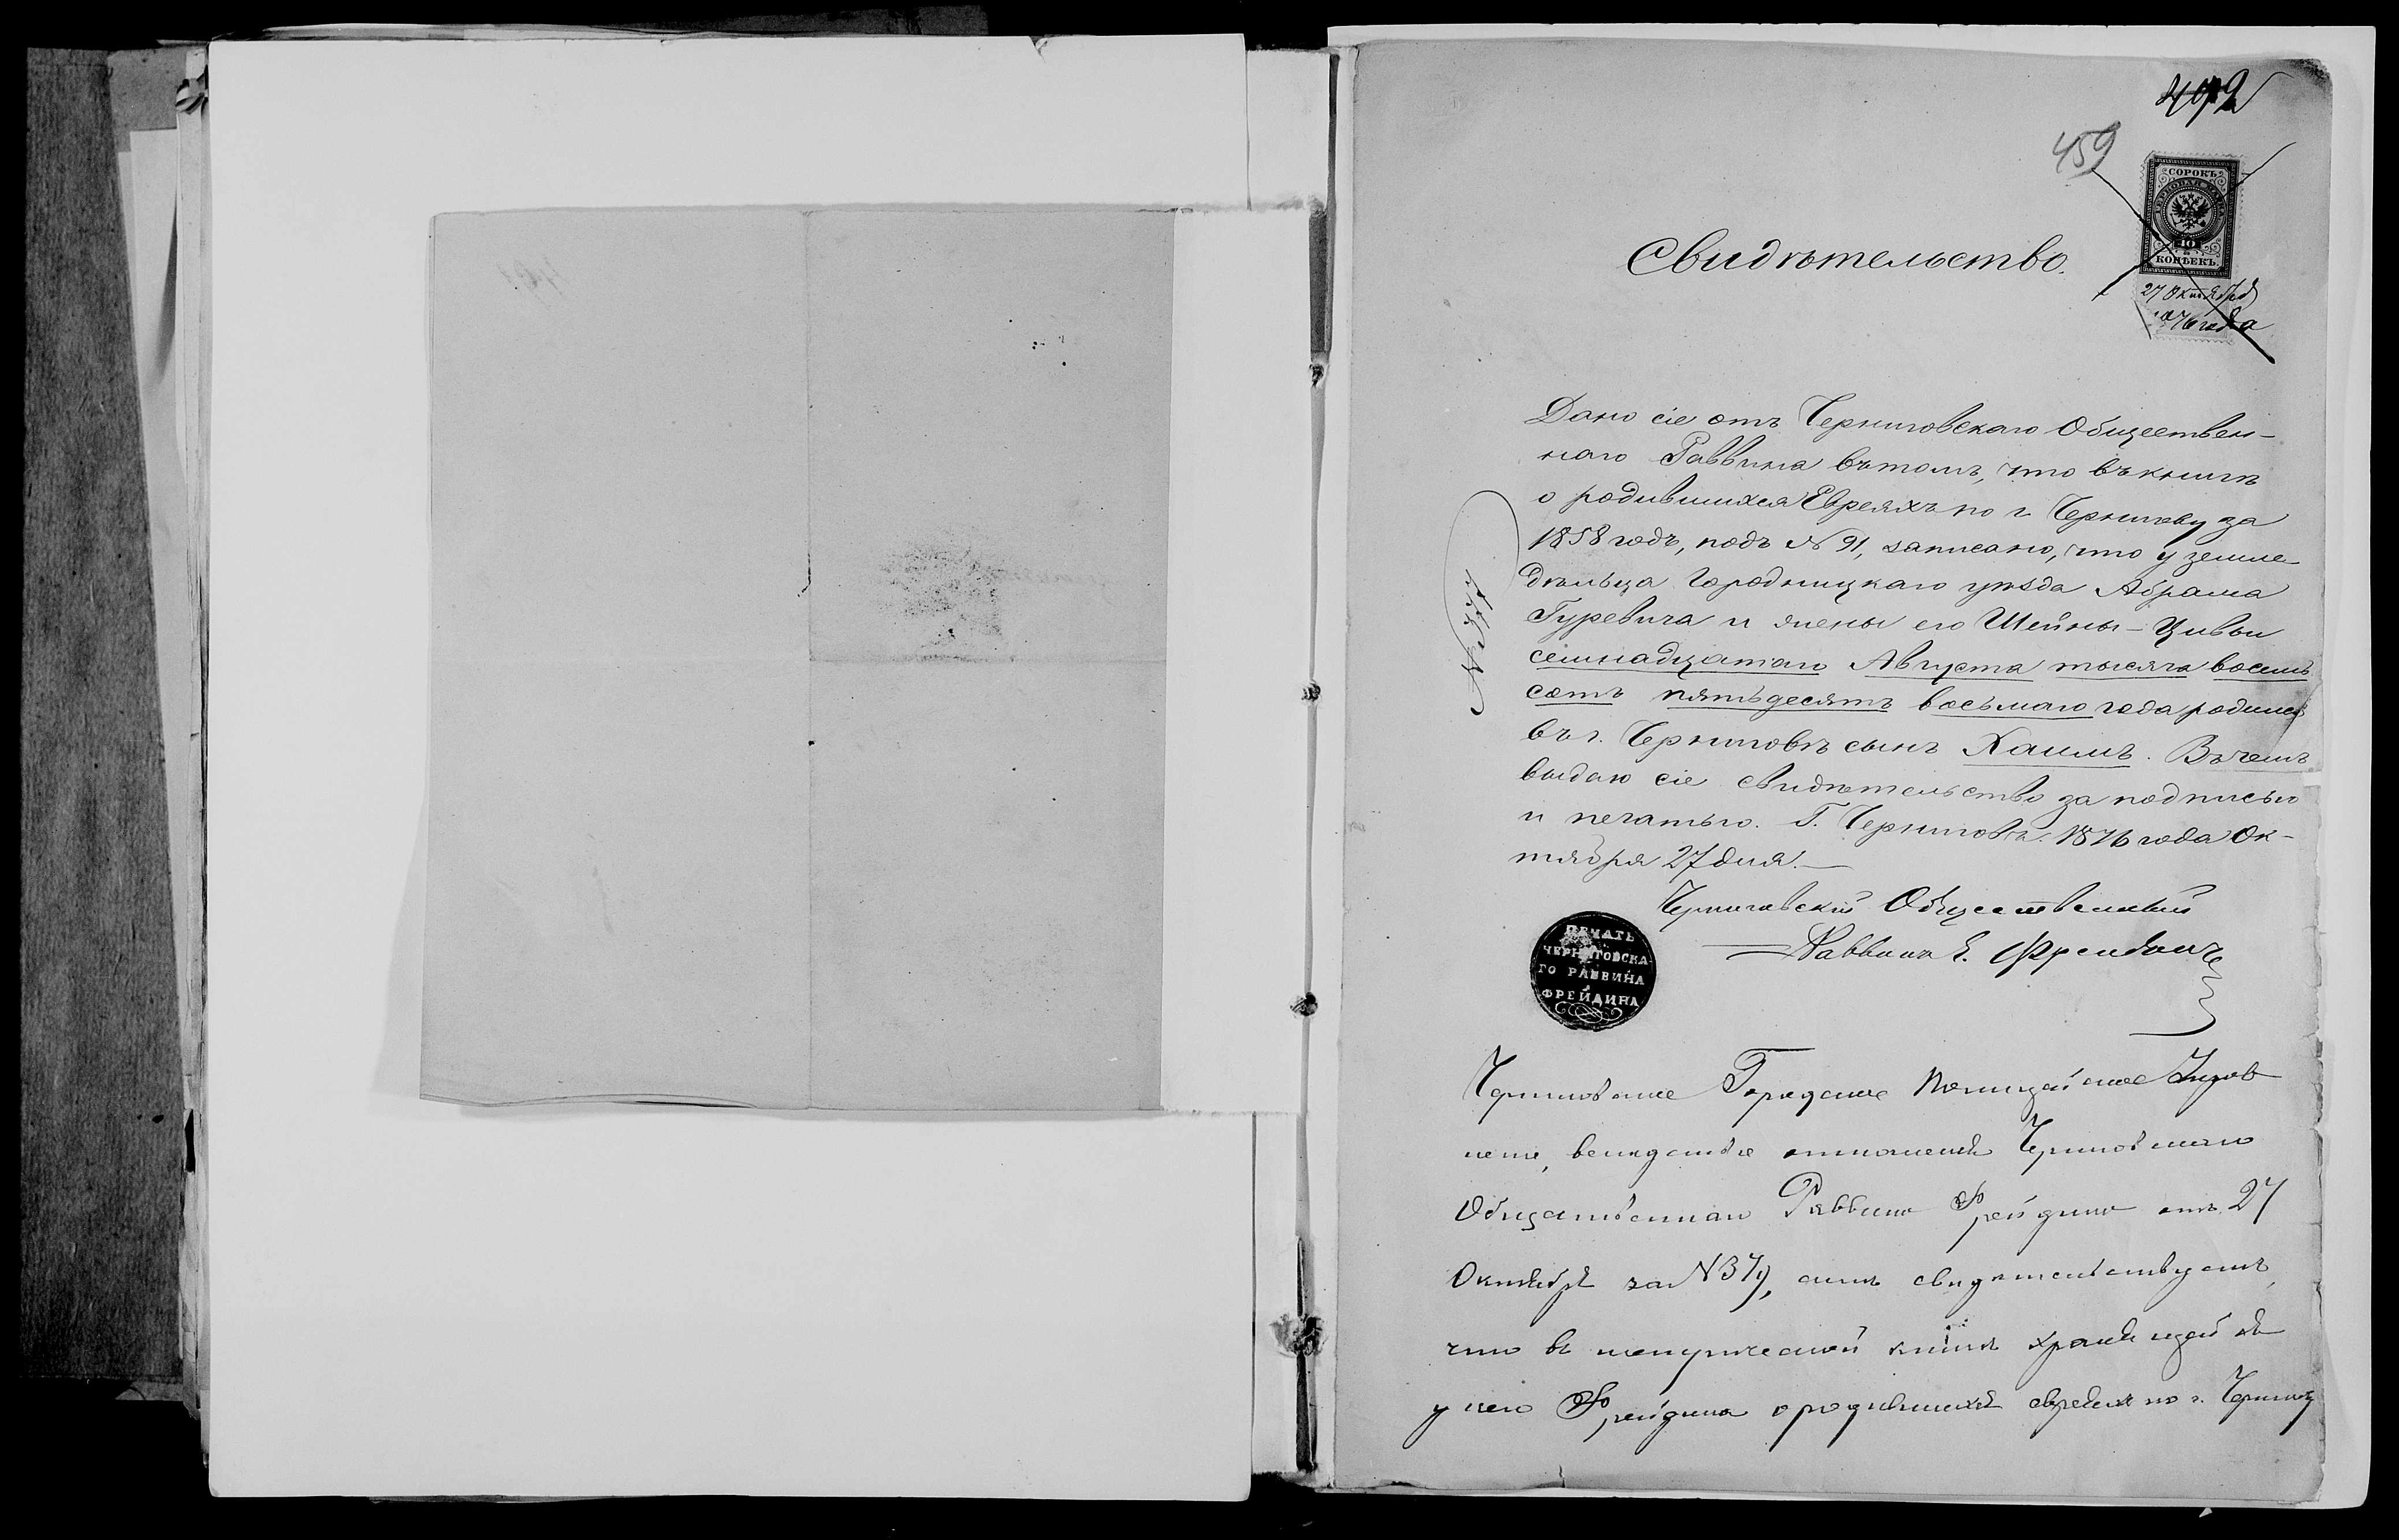 459
СОРОКЪ
40
КОПѢЕКЪ.
27 Октября
1876 года
Свидѣтельство.
Дано сіе отъ Черниговскаго Обществен-
наго Раввина въ томъ, что въ книгѣ
о родившихся Евреяхъ по г. Чернигову за
1858 годъ, подъ № 91, записано, что у земле-
дѣльца Городницкаго уѣзда Абрама
Гуревича и жены его Шейны-Цивьи
семнадцатаго Августа тысяча восемь
сотъ пятьдесятъ восьмаго года родился
въ г. Черниговѣ сынъ Хаимъ. Въ чемъ
выдаю сіе свидѣтельство за подписью
и печатью. Г. Черниговъ. 1876 года Ок-
тября 27 дня.
Черниговский Общественный
Раввинъ Е. Фрейдинъ
ПЕЧАТЬ
ЧЕРНИГОВСКА-
ГО РАВВИНА
ФРЕЙДИНА
Черниговское Городское Полицейское Управ
леніе, вслѣдствіе отношенія Черниговскаго
Общественнаго Раввина Фрейдина отъ 27
Октября за №, симъ свидѣтельствуетъ,
что въ метрической книгѣ хранящейся
у него Фрейдина о родившихся евреяхъ по г. Чернигову